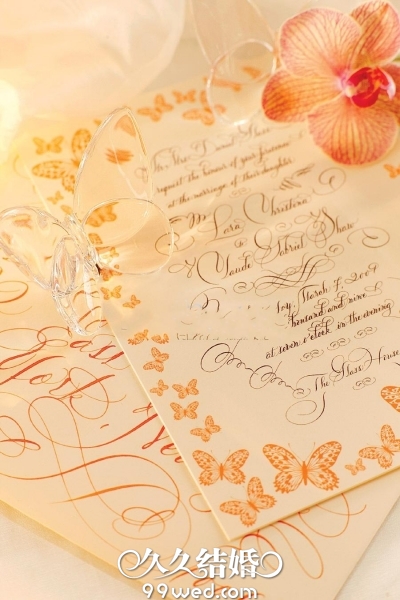 request the honour of your presence
at the marriage of their daughter
Lora Christina
to
Claude Gabriel Shaw
March 7, 2009
thousand and nine
at seven o'clock in the evening
The Glass House
East
York, Ne
久久结婚
99wed.com